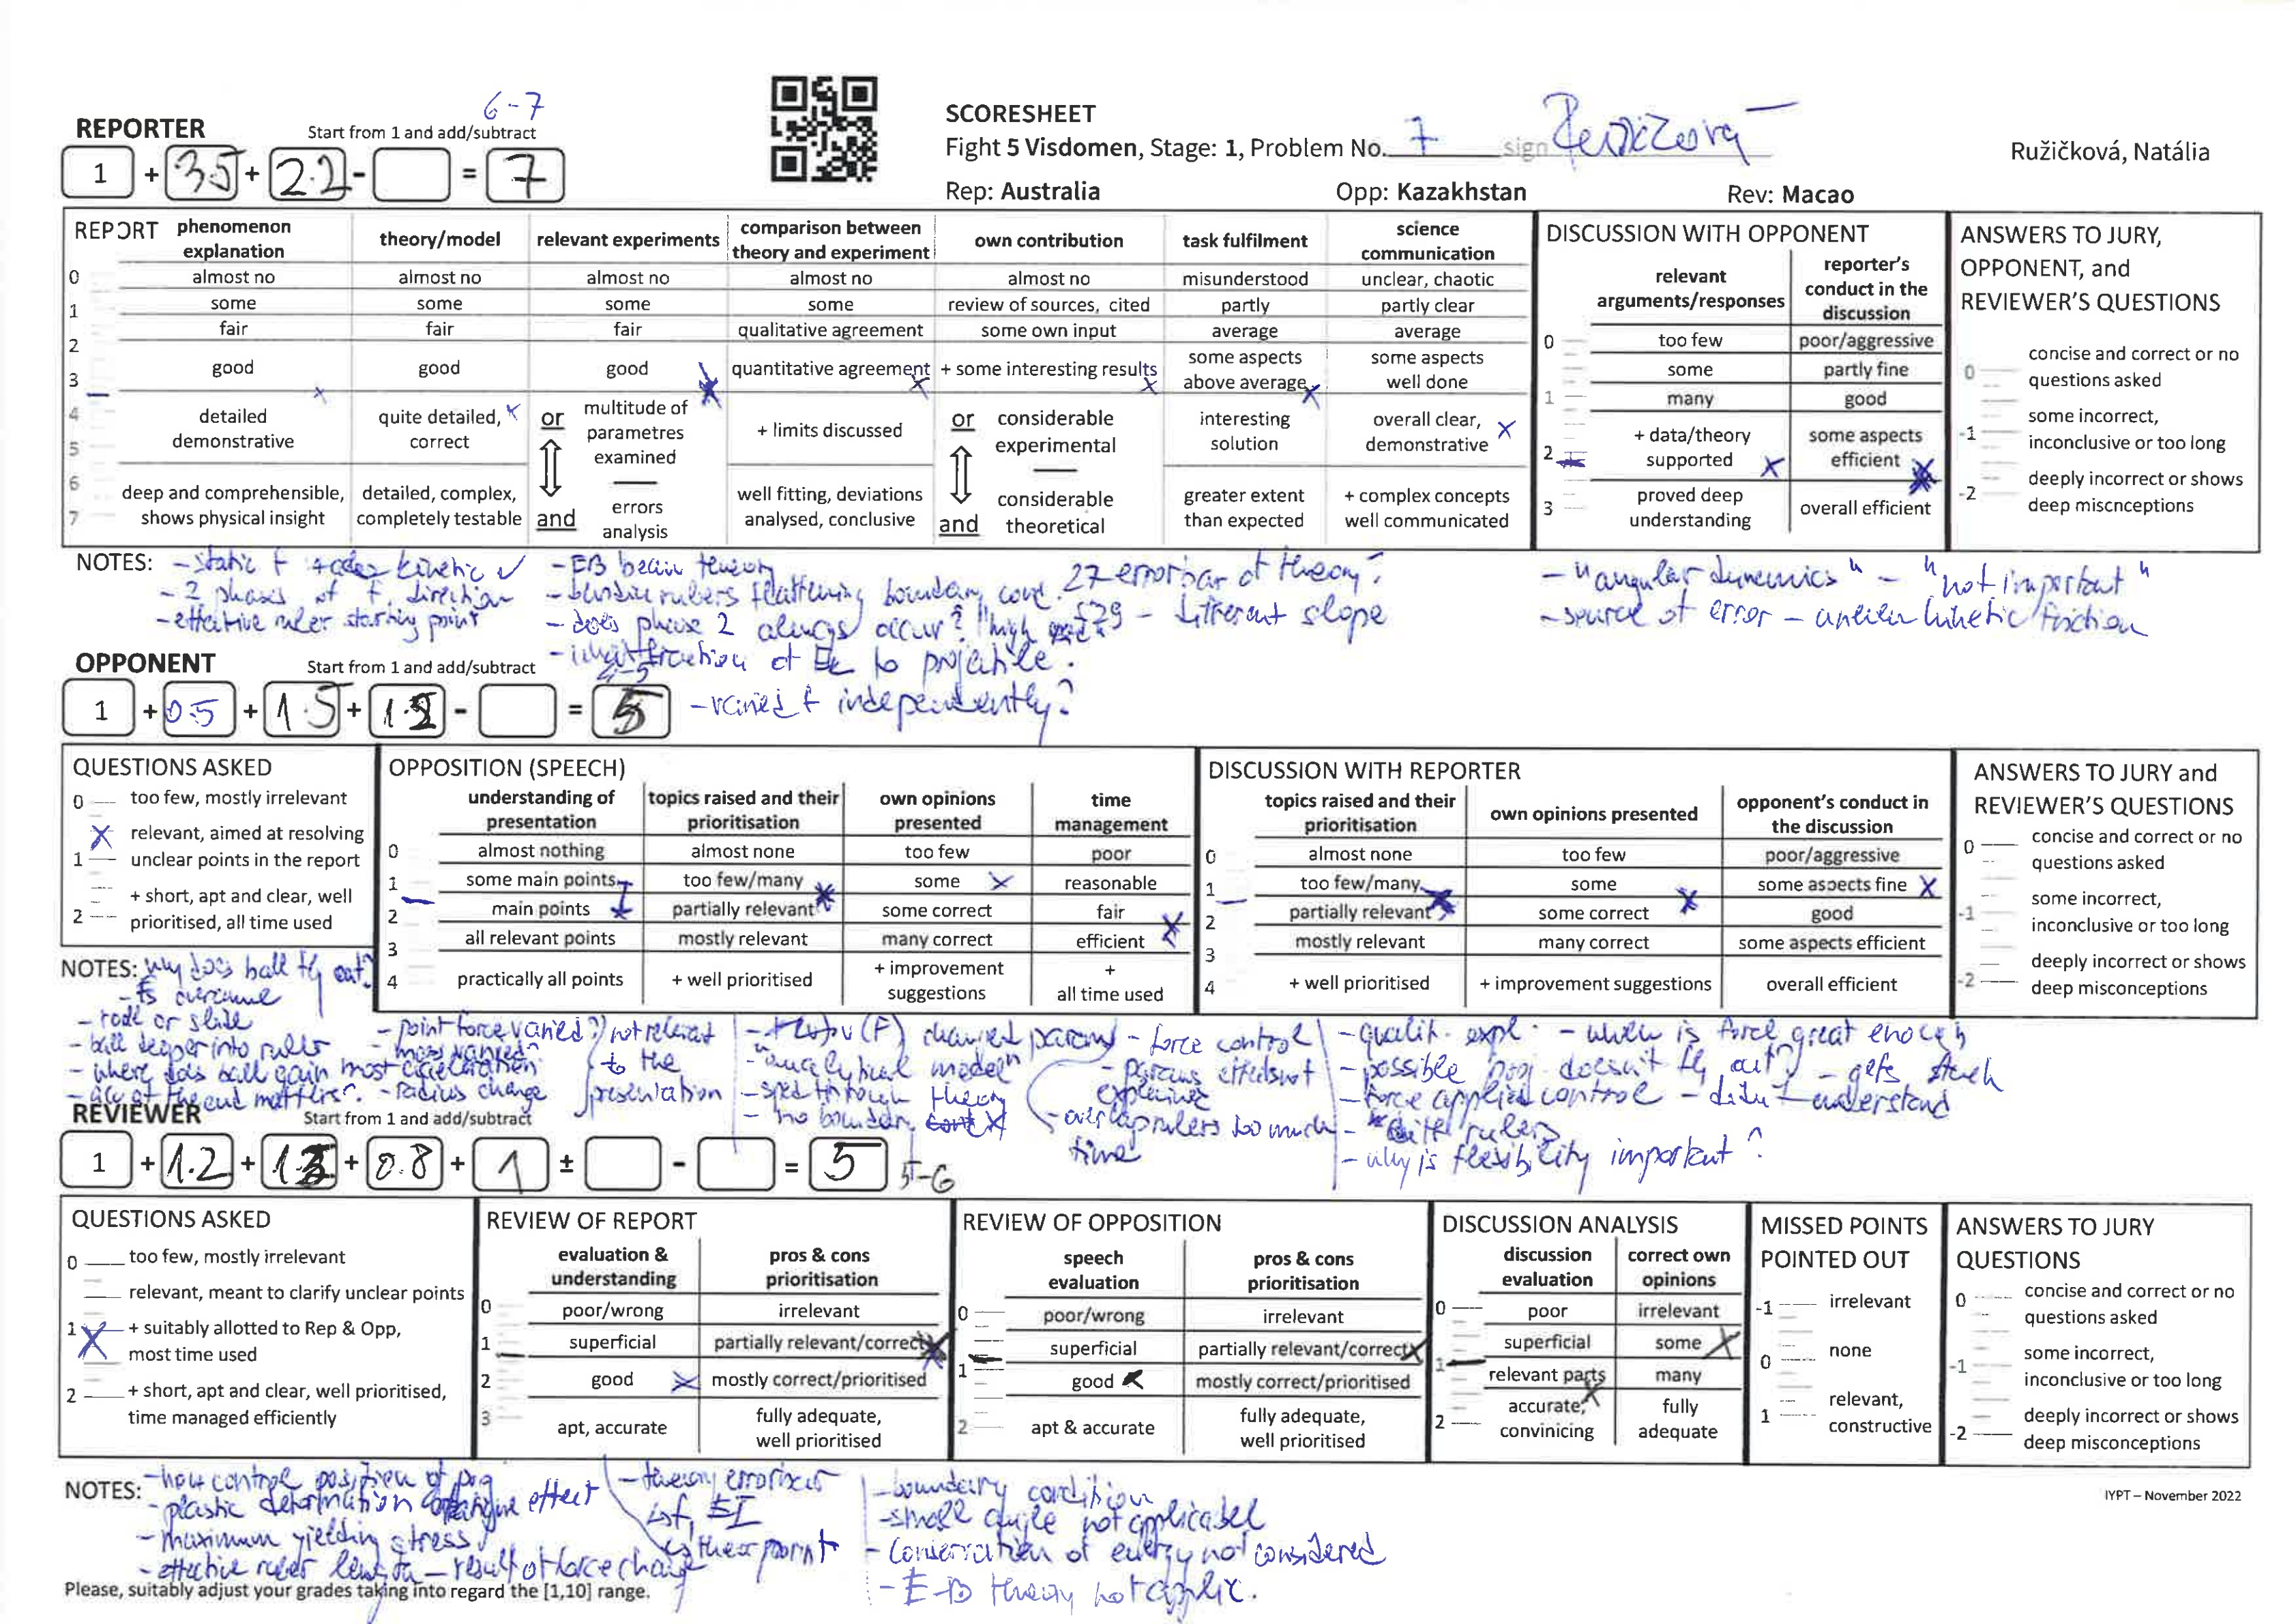 6-7
REPORTER Start from 1 and add/subtract
1 + 3.5 + 2.2 - = 7
SCORESHEET
Fight 5 Visdomen, Stage: 1, Problem No. 7 sign
Ružičková, Natália
Rep: Australia Opp: Kazakhstan Rev: Macao
REPORT phenomenon explanation theory/model relevant experiments comparison between theory and experiment own contribution task fulfilment science communication
0 almost no almost no almost no almost no almost no misunderstood unclear, chaotic
1 some some some some review of sources, cited partly partly clear
2 fair fair fair qualitative agreement some own input average average
3 good good good quantitative agreement + some interesting results some aspects above average some aspects well done
4 5 detailed demonstrative quite detailed, correct or multitude of parametres examined + limits discussed or considerable experimental interesting solution overall clear, demonstrative
6 7 deep and comprehensible, shows physical insight detailed, complex, completely testable and errors analysis well fitting, deviations analysed, conclusive and considerable theoretical greater extent than expected + complex concepts well communicated
DISCUSSION WITH OPPONENT
relevant arguments/responses reporter's conduct in the discussion
0 too few poor/aggressive
some partly fine
1 many good
2 + data/theory supported some aspects efficient
3 proved deep understanding overall efficient
ANSWERS TO JURY, OPPONENT, and REVIEWER'S QUESTIONS
0 concise and correct or no questions asked
-1 some incorrect, inconclusive or too long
-2 deeply incorrect or shows deep miscnceptions
NOTES: - static f kinetic ✓
- 2 phases of f, direction
- effective ruler starting point
- EB beam theory
- bending rulers flattening boundary cond.
- does phase 2 always occur? "high
- what fraction of to projectile.
- varied f independently?
27 errorbar of theory?
£29 - different slope
- "angular dynamics" - "not important"
- source of error - uneven kinetic friction
OPPONENT Start from 1 and add/subtract
4-5
1 + 0.5 + 1.5 + 1.2 - = 5
QUESTIONS ASKED
0 too few, mostly irrelevant
relevant, aimed at resolving
1 unclear points in the report
+ short, apt and clear, well
2 prioritised, all time used
OPPOSITION (SPEECH)
understanding of presentation topics raised and their prioritisation own opinions presented time management
0 almost nothing almost none too few poor
1 some main points too few/many some reasonable
2 main points partially relevant some correct fair
3 all relevant points mostly relevant many correct efficient
4 practically all points + well prioritised + improvement suggestions + all time used
DISCUSSION WITH REPORTER
topics raised and their prioritisation own opinions presented opponent's conduct in the discussion
0 almost none too few poor/aggressive
1 too few/many some some aspects fine
2 partially relevant some correct good
3 mostly relevant many correct some aspects efficient
4 + well prioritised + improvement suggestions overall efficient
ANSWERS TO JURY and REVIEWER'S QUESTIONS
0 concise and correct or no questions asked
-1 some incorrect, inconclusive or too long
-2 deeply incorrect or shows deep misconceptions
NOTES: why does ball fly out?
- fs overcome
- rode or slide
- ball deeper into rulers
- where does ball gain most acceleration
- acc at the end matters?
- point force varied?
- mass varied
- radius change
not relevant to the presentation
(F) changed params
- "analytical model"
- sped through theory
- no boundary
- force control
- params effects not explained
- overlap rulers too much time
- qualit. expl. - when is force great enough
- possible doesn't fly out? - gets stuck
- force applied control - didn't understand
rulers
- why is flexibility important?
REVIEWER Start from 1 and add/subtract
1 + 1.2 + + 0.8 + 1 ± - = 5 5-6
QUESTIONS ASKED
0 too few, mostly irrelevant
relevant, meant to clarify unclear points
1 + suitably allotted to Rep & Opp, most time used
2 + short, apt and clear, well prioritised, time managed efficiently
REVIEW OF REPORT
evaluation & understanding pros & cons prioritisation
0 poor/wrong irrelevant
1 superficial partially relevant/correct
2 good mostly correct/prioritised
3 apt, accurate fully adequate, well prioritised
REVIEW OF OPPOSITION
speech evaluation pros & cons prioritisation
0 poor/wrong irrelevant
superficial partially relevant/correct
1 good mostly correct/prioritised
2 apt & accurate fully adequate, well prioritised
DISCUSSION ANALYSIS
discussion evaluation correct own opinions
0 poor irrelevant
superficial some
1 relevant parts many
2 accurate, convinicing fully adequate
MISSED POINTS POINTED OUT
-1 irrelevant
0 none
1 relevant, constructive
ANSWERS TO JURY QUESTIONS
0 concise and correct or no questions asked
-1 some incorrect, inconclusive or too long
-2 deeply incorrect or shows deep misconceptions
NOTES: - how control position of
- plastic deformation effect
- maximum yielding stress
- effective ruler length - result of force change
- theory errorbars
EI
- boundary condition
- small angle not applicabel
- Conservation of energy not considered
- E-B theory not applic.
IYPT – November 2022
Please, suitably adjust your grades taking into regard the [1,10] range.